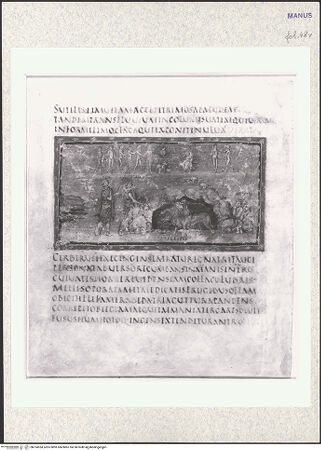 MANUS
fol. 48v
SUTILISETMULTAMACCEPITRIMOSAPALUDEM
TANDEMTRANSFLUVIUMINCOLUMISVATEMQUEVIRUMQ
INFORMILIMOGLAUCAQUEEXPONITINULVA
CERBERUSHAECINGENSLATRATUREGNATRIFAUCI
PERSONATADVERSORECUBANSINMANISINANTRO
CUIVATESHORREREVIDENSIAMCOLLACOLUBRIS
MELLESOPORATAMETMEDICATISFRUGIBUSOFFAM
OBICITILLEFAMERABIDATRIAGUTTURAPANDENS
CORRIPITOBIECTAMATQUEIMMANIATERGARESOLVIT
FUSUSHUMITOTOQUEINGENSEXTENDITURANTRO